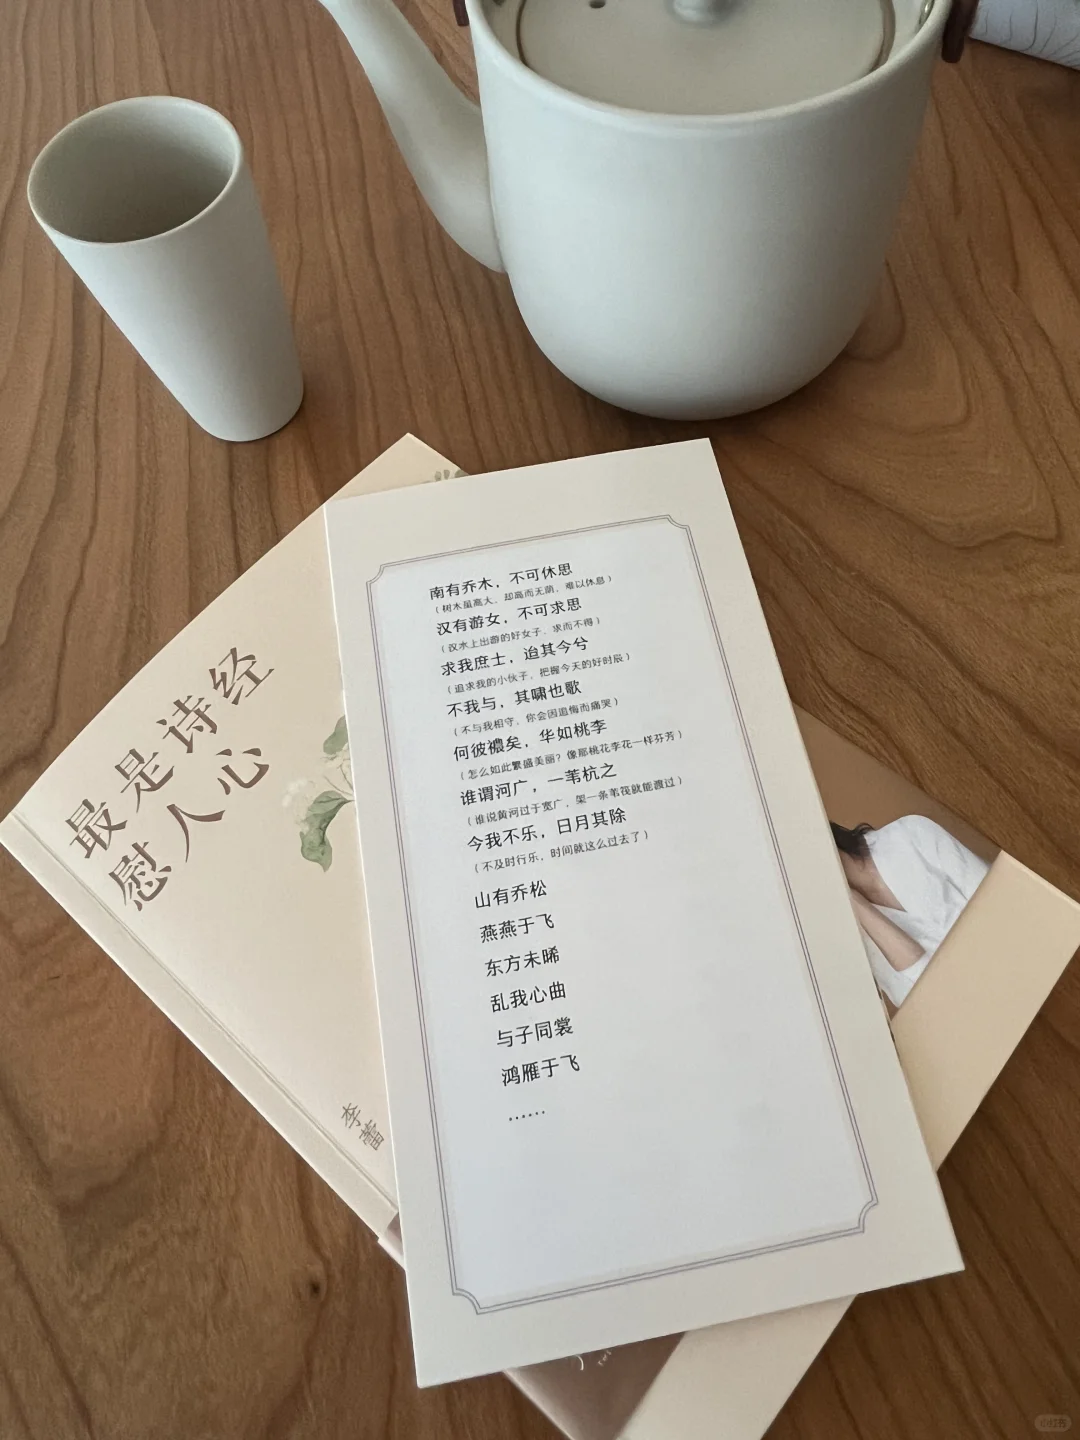 南有乔木，不可休思
（树木虽高大，却高而无荫，难以休息）
汉有游女，不可求思
（汉水上出游的好女子，求而不得）
求我庶士，迨其今兮
（追求我的小伙子，把握今天的好时辰）
不我与，其啸也歌
（不与我相守，你会因追悔而痛哭）
何彼襛矣，华如桃李
（怎么如此繁盛美丽？像那桃花李花一样芬芳）
谁谓河广，一苇杭之
（谁说黄河过于宽广，架一条苇筏就能渡过）
今我不乐，日月其除
（不及时行乐，时间就这么过去了）
山有乔松
燕燕于飞
东方未晞
乱我心曲
与子同裳
鸿雁于飞
……
最是诗经
慰人心
李蕾
小红书